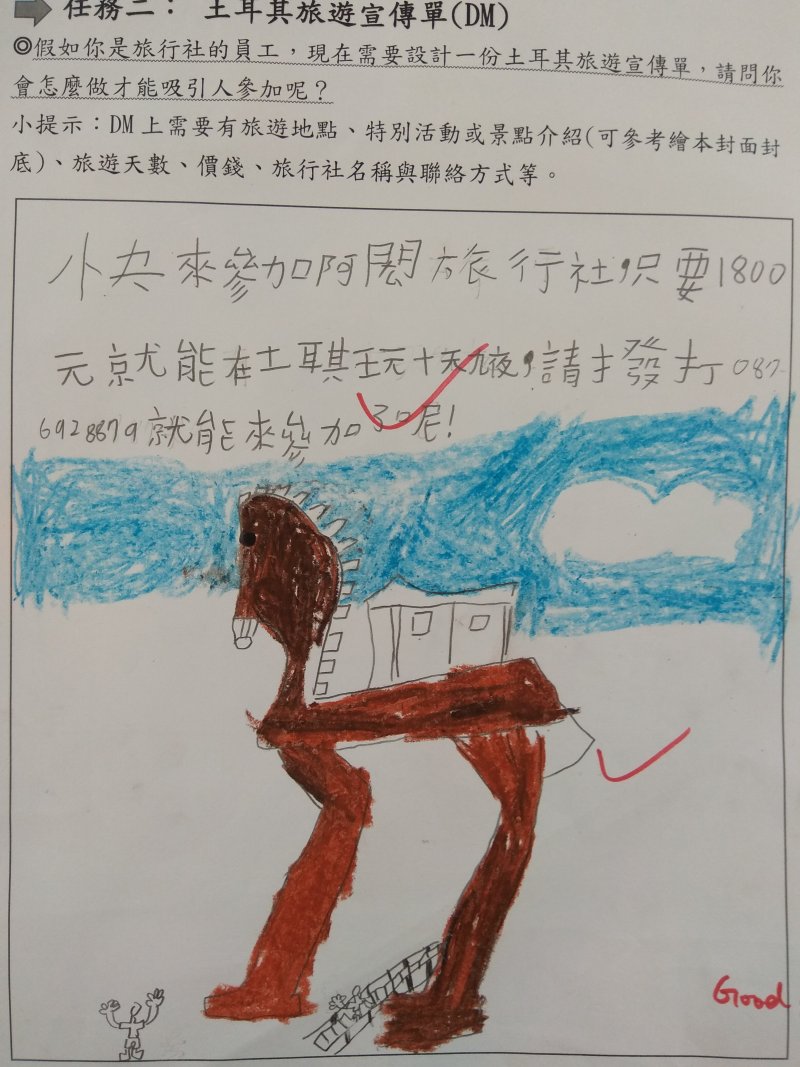 任務二： 土耳其旅遊宣傳單(DM)
◎假如你是旅行社的員工，現在需要設計一份土耳其旅遊宣傳單，請問你
會怎麼做才能吸引人參加呢？
小提示：DM上需要有旅遊地點、特別活動或景點介紹(可參考繪本封面封
底)、旅遊天數、價錢、旅行社名稱與聯絡方式等。
快來參加阿閎旅行社,只要1800
元就能在土耳其玩十天九夜,請撥打087-
6928879就能來參加了呢!
Good